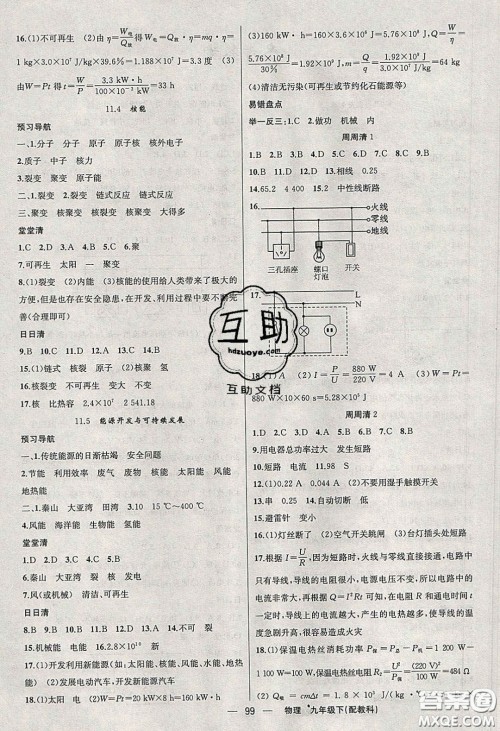 16.(1)不可再生 (2)由η=W电/Q燃 得W电=Q燃·η=mq·η=
1 kg×3.0×10⁷ J/kg×39.6%=1.188×10⁷ J=3.3 度 (3)
由W=Pt 得 t=W/P=3.3 kW·h/100×10⁻³ kW=33 h
11.4 核能
预习导航
一、分子 分子 原子 原子核 核外电子
2.质子 中子 核 核力
二、1.裂变 聚变 原子能
2.(1)裂变 链式反应 链式反应
三、聚变 核聚变 核聚变 大得多
堂堂清
1.C 2.D 3.A 4.B 5.C 6.聚
7.可再生 太阳 — 聚变
8.(1)裂变 (2)内能 (3)核能的使用给人类带来了极大的
方便,但是也存在安全隐患,在开发、利用过程中要不断完
善(合理即可)
日日清
9.B 10.B 11.D 12.A 13.C 14.D
15.(1)链式 核裂变 (2)核聚 氢
16.核裂变 不可再生 变大 不变
17.核 比热容 2.4×10⁷ 2 541.18
11.5 能源开发与可持续发展
预习导航
一、(1)传统能源的日渐枯竭 安全问题
2.节能 利用效率 废电 废气 核能 太阳能 风能
地热能
二、1.秦山 大亚湾 田湾 2.D 3.10 15℃~400℃
4.风能 海洋能 生物能 氢能
堂堂清
1.D 2.D 3.C 4.B 5.D
6.秦山 大亚湾 裂 核 发电
7.风(或风能) 清洁、可再生
日日清
8.B 9.D 10.A 11.A 12.D 13.A 14.不可 裂
15.机械能 电能 16.2.8×10¹⁰ 弱
17.(1)开发利用新能源(如:利用太阳能、风能、水能、地热
能等) (2)发展电动汽车、新能源汽车
18.(1)太阳 电 (2)W=Pt=20 kW×8 h=160 kW·h
(3)160 kW·h=5.76×10⁸ J
5.76×10⁸ J/30%=1.92×10⁹ J m=Q放/q=1.92×10⁹ J/3.0×10⁷ J/kg=64 kg
(4)清洁无污染(可再生或节约化石能源等)
易错盘点
举一反三:1.C 2.做功 机械 内
周周清 1
1.B 2.B 3.D 4.B 5.B 6.C 7.B 8.D
9.C 10.B 11.B 12.D 13.相线 0.25
14.65.2 4 800 15.2 中性线断路
16.
火线
零线
地线
三孔插座 螺口
灯泡 开关
17.
L
N
18.(1)4 A (2)I=P/U=880 W/220 V=4 A (3)W=Pt=
880 W×10×60 s=5.28×10⁵ J
周周清 2
1.D 2.C 3.D 4.A 5.D 6.B 7.A 8.A
9.用电器总功率过大 发生短路
10.短路 电流 11.98 S
12.(1)0.22 (2)A 13.不要用湿手触摸开关
14.串 0.25
15.避雷针 引发
16.(1)丝状 (2)空气开关跳闸 (3)台灯插头处短路
17.根据I=U/R,因为短路时,火线与零线直接接通,电路中
只有导线,导线的电阻很小,电源电压不变,因此电路中的
电流非常大,再根据焦耳定律Q=I²Rt可知,在R和通电时间t
一定时,导线上的电流越大,产生的电热就会越多,导线的温度
会急剧升高,极易引发火灾
18.(1)保温电热丝消耗的电功率P保=P总-P热=1 200 W-
1 100 W=100 W,保温电热丝电阻R=U²/P保=(220 V)²/100 W=484 Ω
(2)水吸收的热量Q=cmΔt=1.0 kg×4.2×10³ J/(kg·
99 物理·九年级下(配教科)
互助
hdzuoye.com
互助文档
答案圈
MXQE.COM